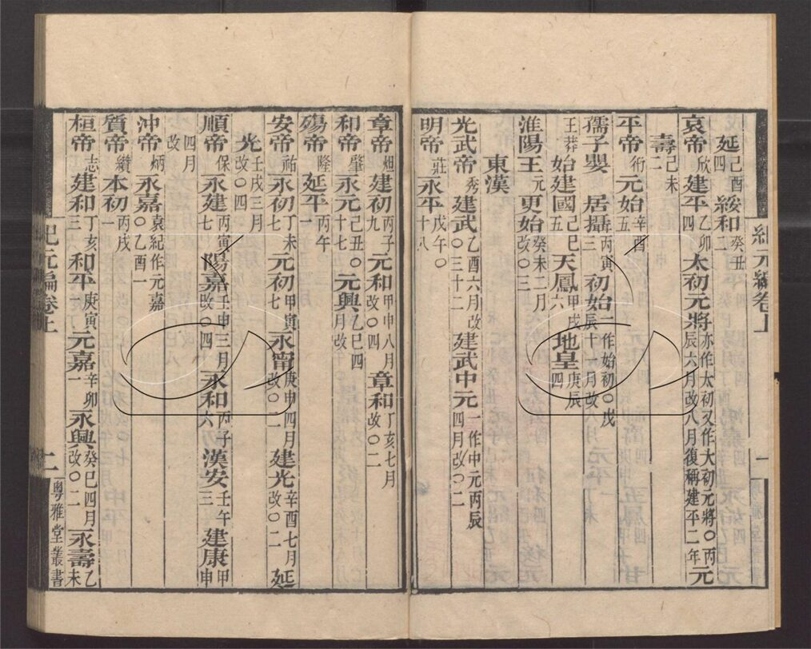 紀元編卷上 一
延四己酉 綏和二癸丑
哀帝欣 建平四乙卯 太初元將亦作太初又作大初元將〇丙辰六月改八月復稱建平二年 元
壽二己未
平帝衎 元始五辛酉
孺子嬰 居攝三丙寅 初始一作始初〇戊辰十一月改
王莽 始建國五己巳 天鳳六甲戌 地皇四庚辰
淮陽王元 更始癸未二月改〇三
東漢
光武帝秀 建武乙酉六月改〇三十二 建武中元一作中元丙辰四月改〇二
明帝莊 永平戊午〇十八
章帝炟 建初九丙子 元和甲申八月改〇四 章和丁亥七月改〇二
和帝肇 永元己丑〇十七 元興乙巳四月改〇一
殤帝隆 延平一丙午
安帝祜 永初七丁未 元初七甲寅 永甯庚申四月改〇二 建光辛酉七月改〇二 延
光壬戌三月改〇四
順帝保 永建七丙寅 陽嘉壬申三月改〇四 永和六丙子 漢安三壬午 建康甲申
四月改
沖帝炳 永嘉袁紀作元嘉〇乙酉一
質帝纘 本初一丙戌
桓帝志 建和三丁亥 和平一庚寅 元嘉一辛卯 永興癸巳四月改〇二 永壽乙未
紀元編卷上 二 粵雅堂叢書